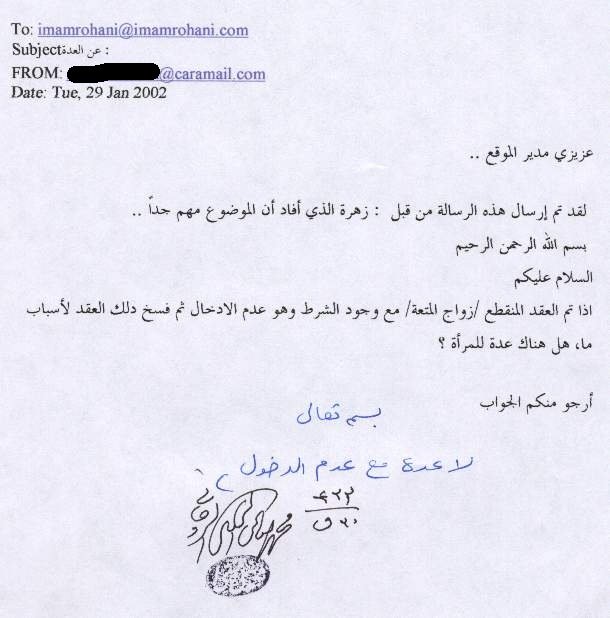 To: imamrohani@imamrohani.com
Subject عن العدة :
FROM: @caramail.com
Date: Tue, 29 Jan 2002
عزيزي مدير الموقع ..
لقد تم إرسال هذه الرسالة من قبل : زهرة الذي أفاد أن الموضوع مهم جداً ..
بسم الله الرحمن الرحيم
السلام عليكم
اذا تم العقد المنقطع /زواج المتعة/ مع وجود الشرط وهو عدم الادخال ثم فسخ ذلك العقد لأسباب
ما، هل هناك عدة للمرأة ؟
أرجو منكم الجواب
بسم تعالى
لا عدة مع عدم الدخول